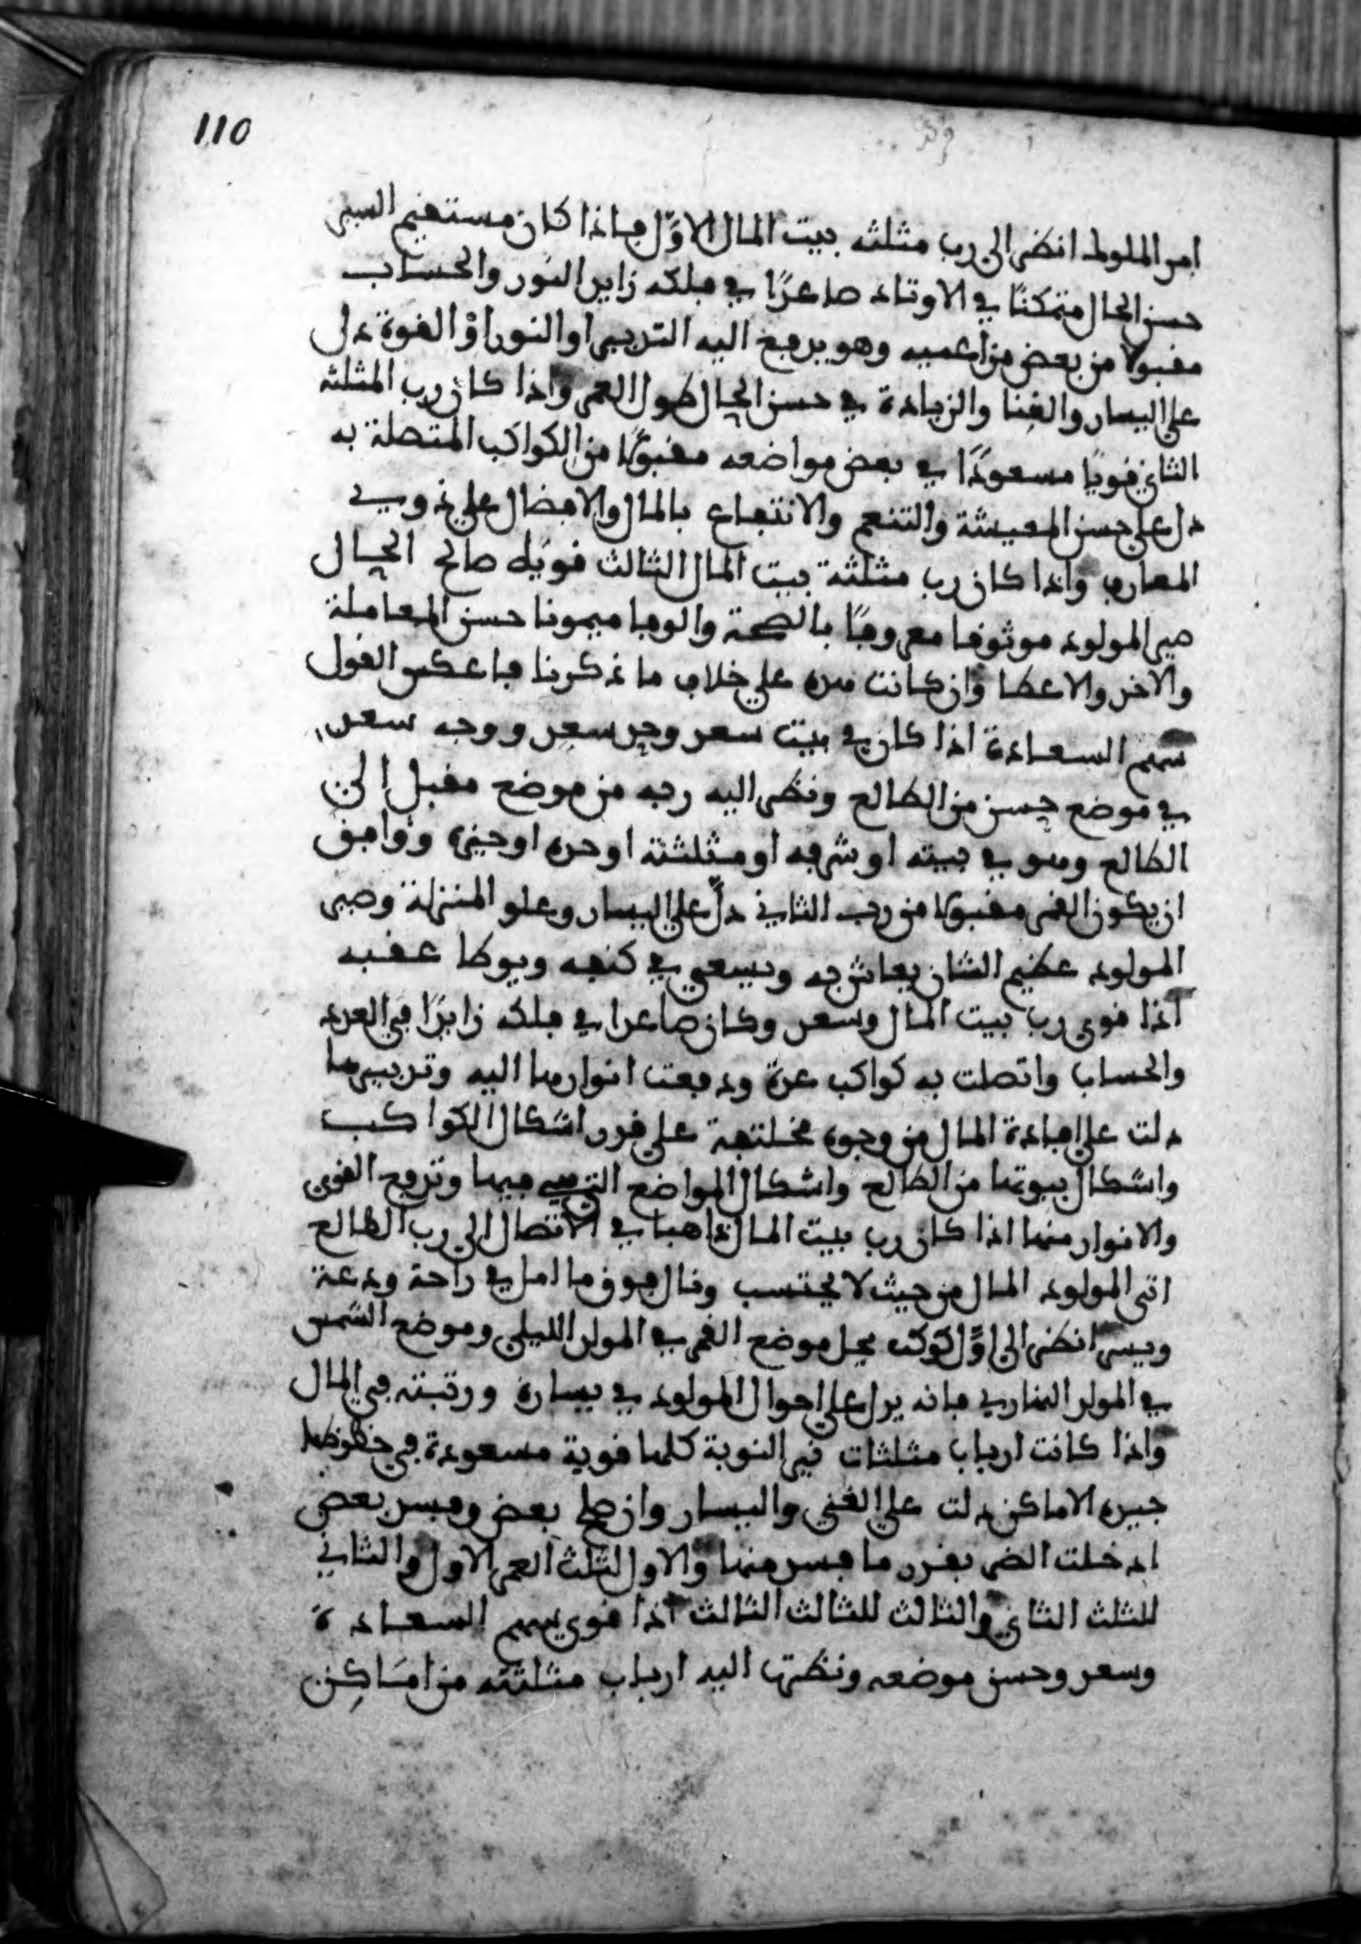 110
امر الملوك انظر الى رب مثلثه بيت المال الاوّل فاذا كان مستقيم السير
حسن الحال متمكنا في الاوتاد صاعدًا في فلكه زايد النور والحساب
مقبولا من بعض من اعميه وهو يرفع اليه التدبير او النور اوْ القوة دل
على اليسار والغنا والزيادة في حسن الحال طول العمر واذا كان رب المثلثه
الثاني قويا مسعودًا في بعض مواضعه مقبولا من الكواكب المتصلة به
دل على حسن المعيشة والتنعم والانتفاع بالمال والافضال على ذوي
المعارف واذا كان رب مثلثة بيت المال الثالث قويا صالح الحال
صير المولود موثوقا معروفًا بالصحة والوفا ميمونا حسن المعاملة
والاخذ والاعطا وان كانت هذه على خلاف ما ذكرنا فاعكس القول
سهم السعادة اذا كان في بيت سعد وحد سعد ووجه سعد
في موضع حسن من الطالع ونظر اليه ربه من موضع مقبل الى
الطالع وهو في بيته او شرفه او مثلثته او حده او حيزه ووافق
ان يكون القمر مقبولا من رب الثاني دلّ على اليسار وعلو المنزلة وصير
المولود عظيم الشان يعاش به ويسعى في كنفه ويوطا عقبه
اذا قوي رب بيت المال وسعد وكان صاعدا في فلكه زايدًا في العدد
والحساب واتصلت به كواكب عدة ودفعت انوارها اليه وتدبيرها
دلت على افادة المال من وجوه مختلفة على قدر اشكال الكواكب
واشكال بيوتها من الطالع واشكال المواضع التي هي فيها وتدفع القوى
والانوار منها اذا كان رب بيت المال ذاهبا في الاتصال الى رب الطالع
اتى المولود المال من حيث لا يحتسب ونال فوق ما امل في راحة ودعة
ويسر انظر الى اوّل كوكب يحل موضع القمر في المولد الليلي وموضع الشمس
في المولد النهاري فانه يدل على احوال المولود في يساره ورتبته في المال
واذا كانت ارباب مثلثات نير النوبة كلها قوية مسعودة في حظوظها
جيده الاماكن دلت على الغنى واليسار وان صلح بعض وفسد بعض
ادخلت الضر بقدر ما فسد منها والاول لثلث العمر الاول والثاني
للثلث الثاني والثالث للثالث الثالث اذا قوي سهم السعادة
وسعد وحسن موضعه ونظرت اليه ارباب مثلثته من اماكن